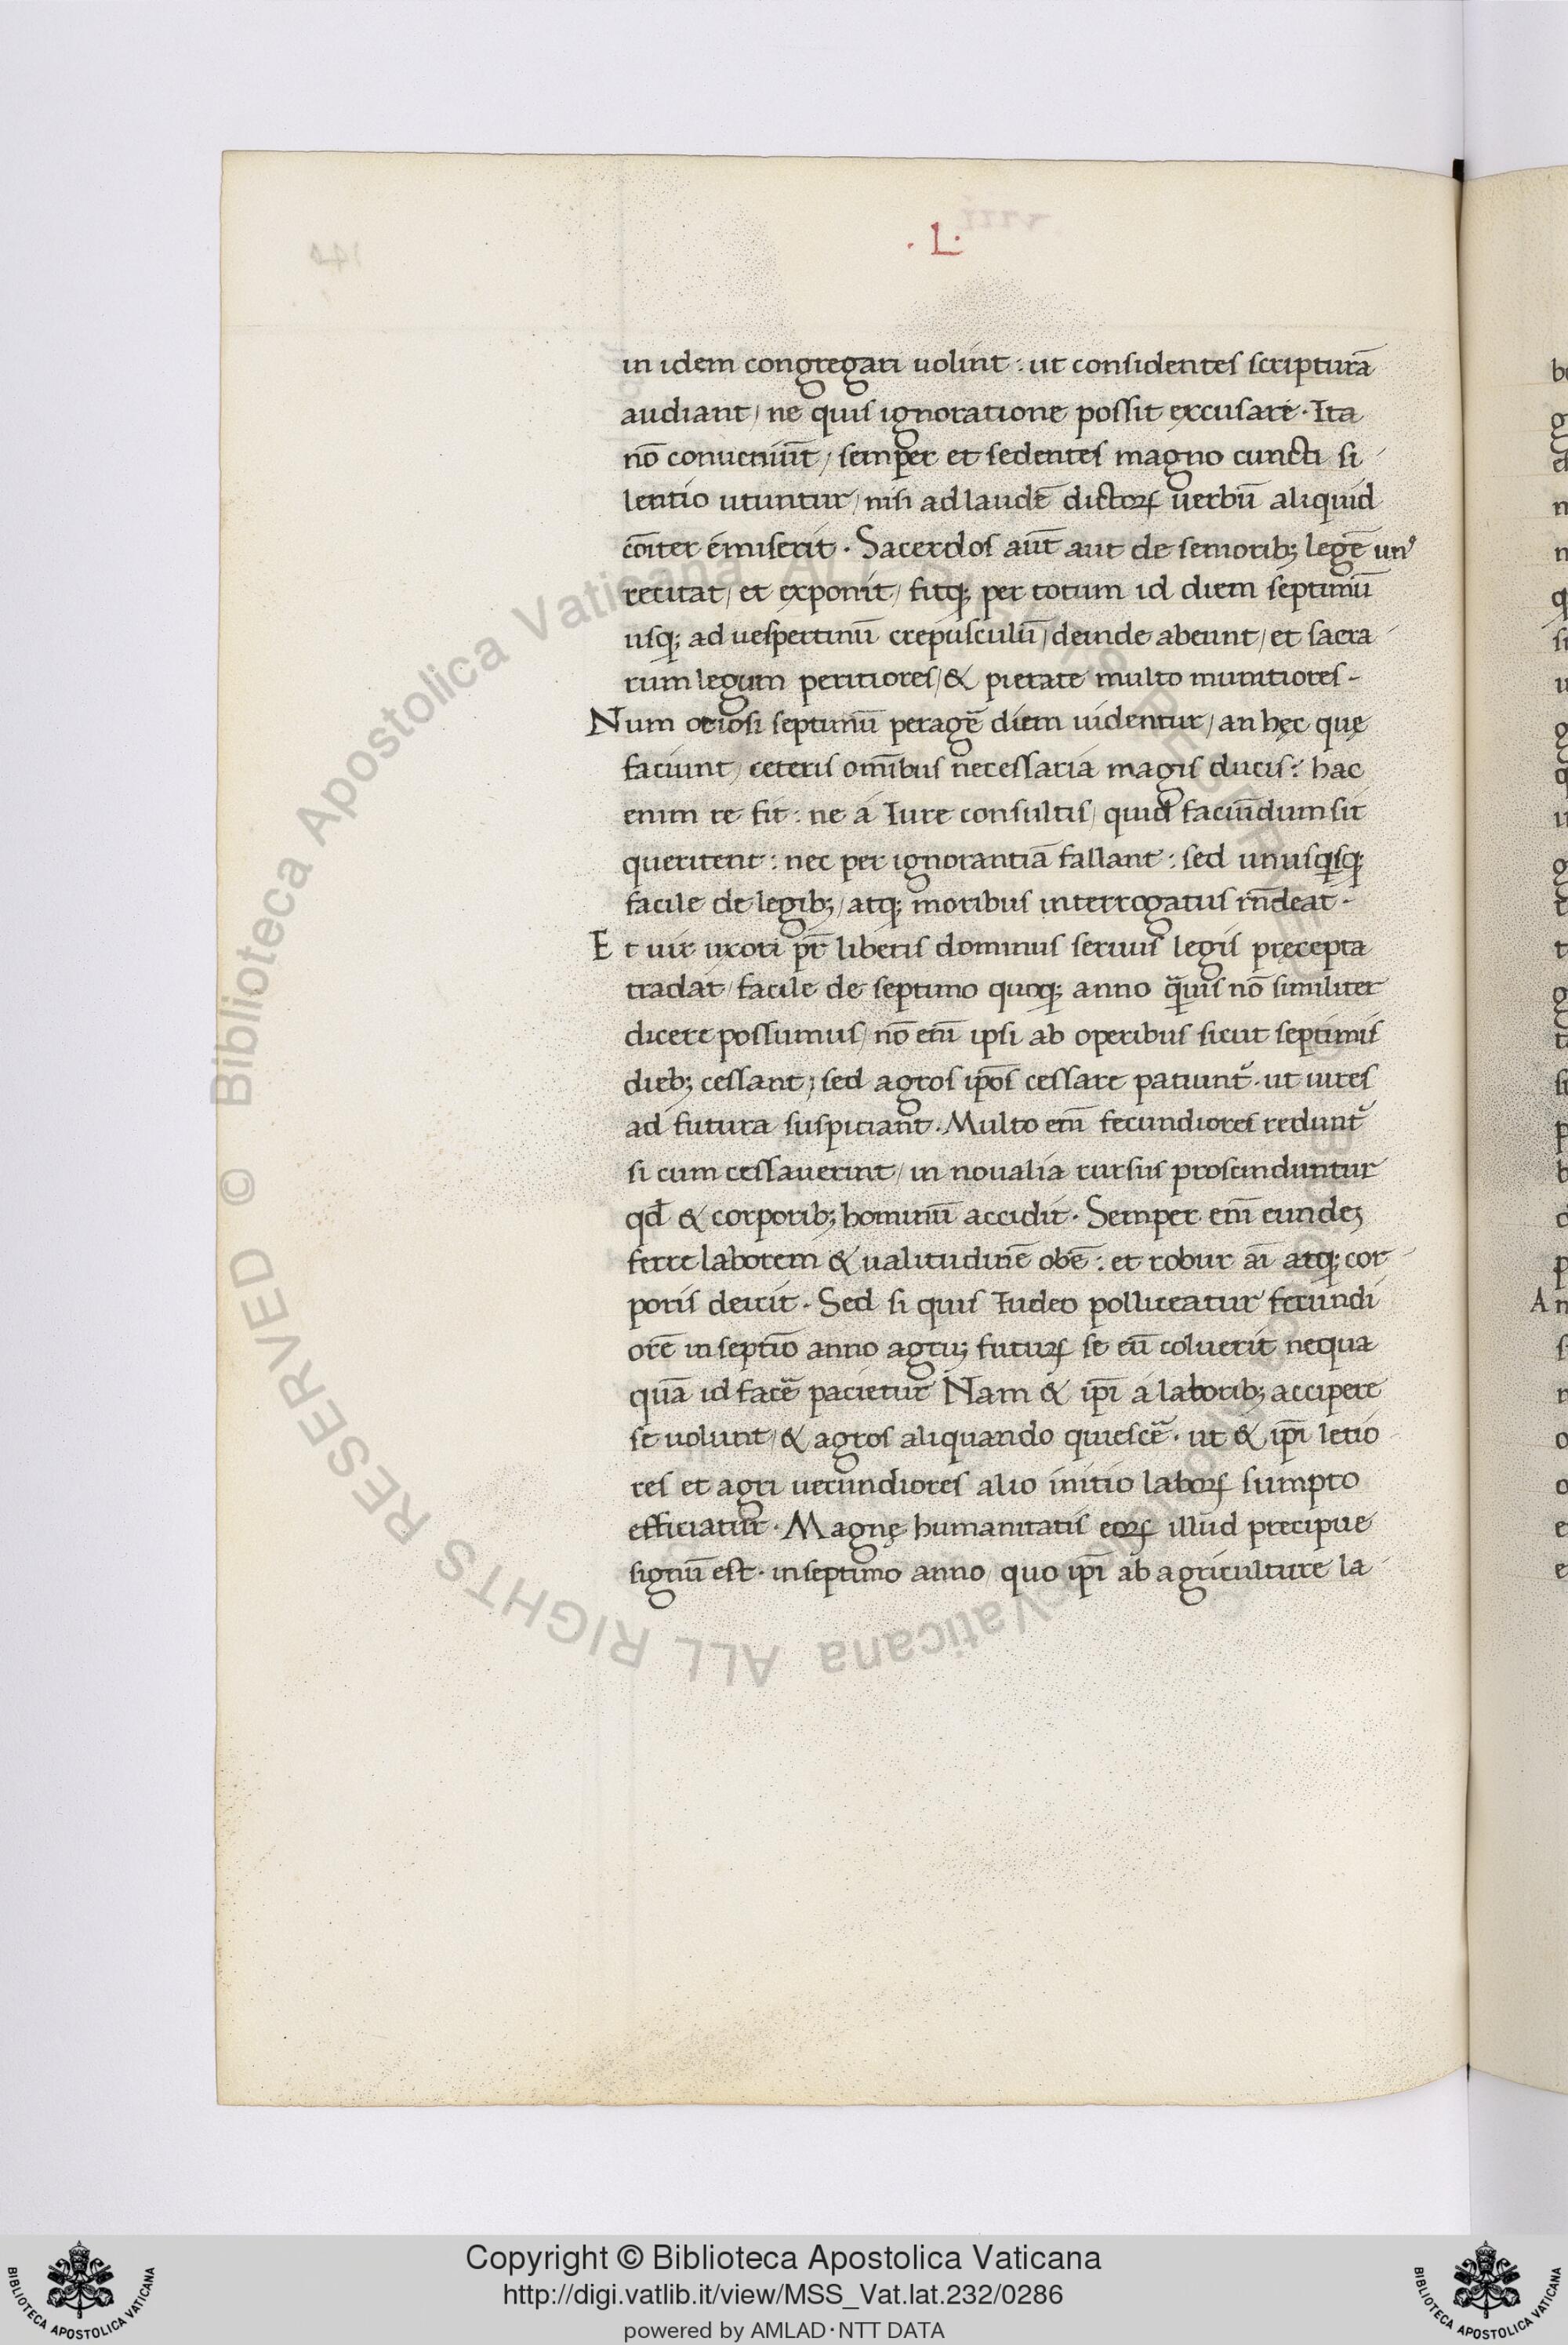 · L ·
in idem congregari uolint : ut considentes scripturā
audiant / ne quis ignoratione possit excusare · Ita
nō conueniūt / semper et sedentes magno cuncti si
lentio utuntur / nisi ad laudē dictoꝝ uerbū aliquid
cōiter emiserit · Sacerdos aūt aut de senioribꝫ legē unꝰ
recitat / et exponit / fitqꝫ per totum id diem septimū
usqꝫ ad uespertinū crepusculū / deinde abeunt / et sacra
rum legum peritiores / & pietate multo munitiores -
Num otiosi septimū peragē diem uidentur / an hęc quę
faciunt / ceteris om̄ibus necessaria magis ducis : hac
enim re fit : ne a Iure consultis / quid faciūdum sit
queritent : nec per ignorantiā fallant : sed unusqsqꝫ
facile de legibꝫ / atqꝫ moribus interrogatus rn̄deat ·
Et uir uxori pr̄ liberis dominus seruis legis pręcepta
tradat / facile de septimo quoqꝫ anno q̄uis nō similiter
dicere possumus / nō em̄ ipsi ab operibus sicut septimis
diebꝫ cessant ; sed agros ip̄os cessare patiunt᷑ · ut uires
ad futura suspiciant · Multo em̄ fecundiores redunt᷑
si cum cessauerint / in noualia rursus proscinduntur
qd̄ & corporibꝫ hominū accidit · Semper em̄ eundeꝫ
ferre laborem & ualitudinē obē : et robur aī atqꝫ cor
poris deicit · Sed si quis Iudeo polliceatur fecundi
orē in septīo anno agrūꝫ futuꝝ se eū coluerit nequa
quā id facē pacietur Nam & ip̄i a laboribꝫ accipere
se uolunt / & agros aliquando quiescē · ut & ip̄i letio
res et agri uecundiores alio initio laboꝝ sumpto
efficiatur · Magnę humanitatis eoꝝ illud precipue
signū est · in septimo anno / quo ip̄i ab agriculture la
Copyright © Biblioteca Apostolica Vaticana
http://digi.vatlib.it/view/MSS_Vat.lat.232/0286
powered by AMLAD·NTT DATA